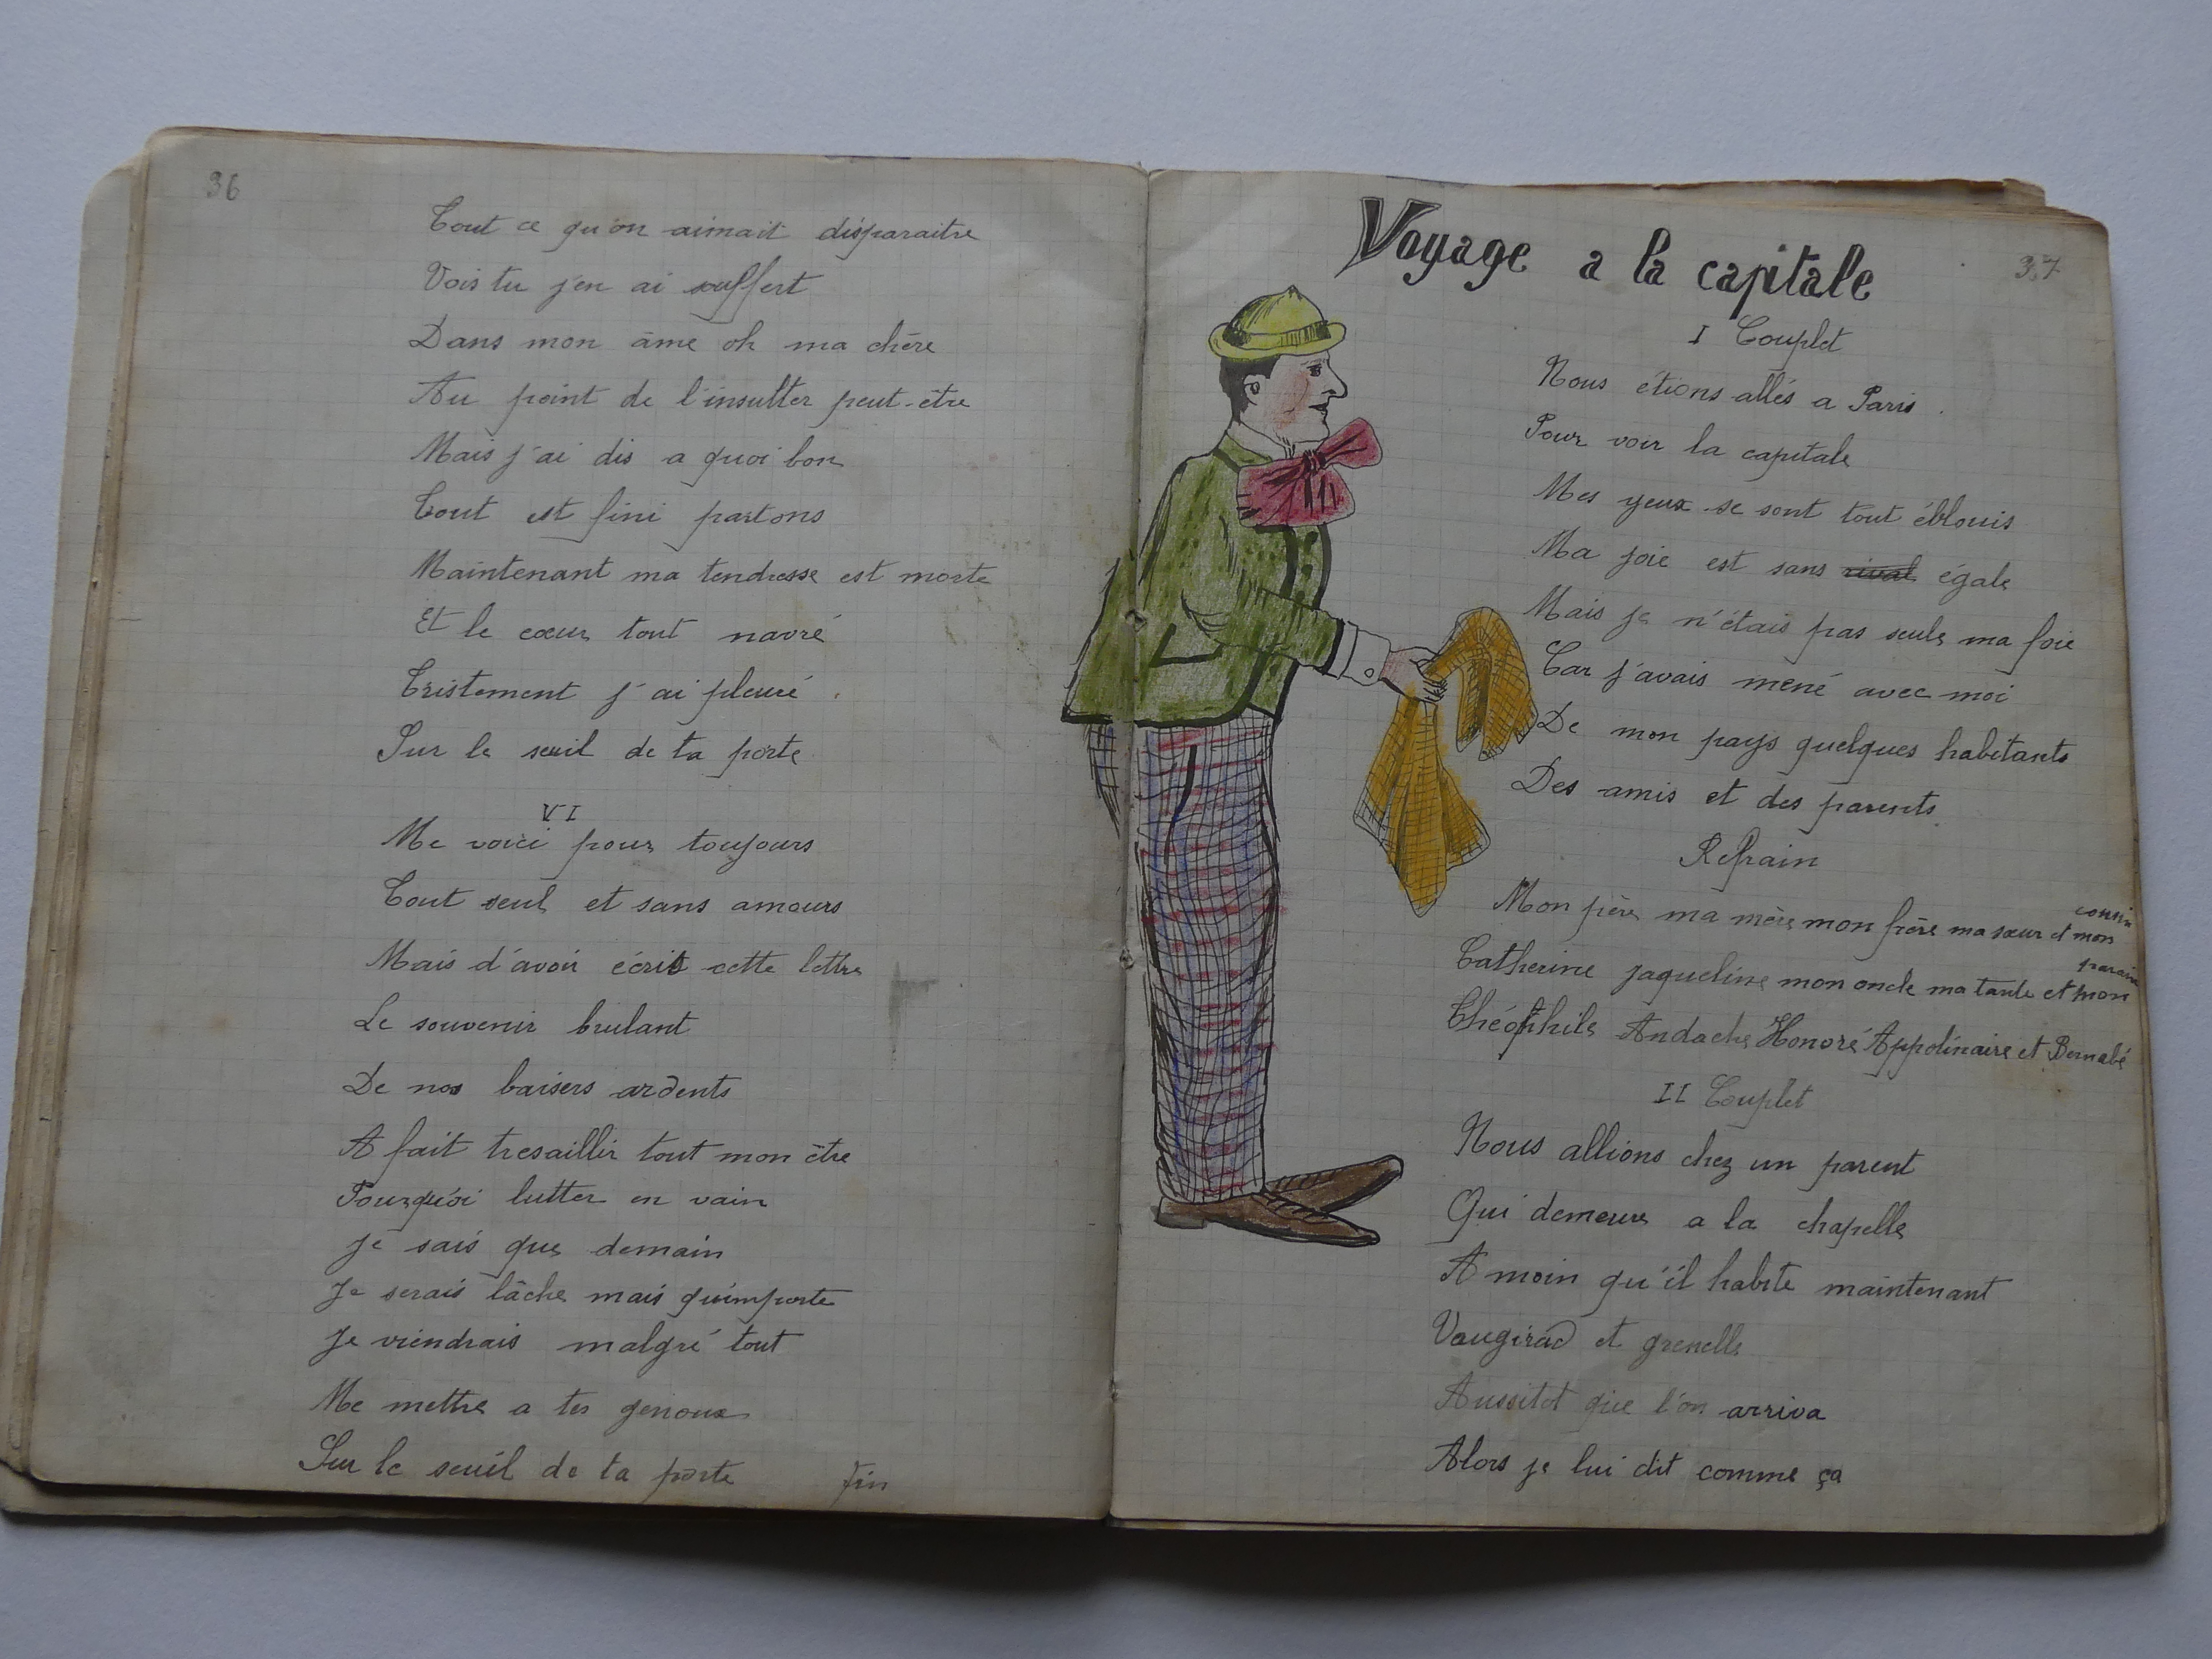 36
Tout ce qu'on aimait disparaitre
Vois tu j'en ai souffert
Dans mon âme oh ma chère
Au point de l'insulter peut-être
Mais j'ai dis a quoi bon
Tout est fini partons
Maintenant ma tendresse est morte
Et le cœur tout navré
Tristement j'ai pleuré
Sur le seuil de ta porte
VI
Me voici pour toujours
Tout seul et sans amours
Mais d'avoir écrit cette lettre
Le souvenir brulant
De nos baisers ardents
A fait tresaillir tout mon être
Pourquoi lutter en vain
Je sais que demain
Je serais lâche mais qu'importe
Je viendrais malgré tout
Me mettre a tes genoux
Sur le seuil de ta porte fin
Voyage a la capitale
37
I Couplet
Nous étions allés a Paris.
Pour voir la capitale
Mes yeux se sont tout éblouis
Ma joie est sans rival égale
Mais je n'étais pas seule ma foie
Car j'avais mené avec moi
De mon pays quelques habitants
Des amis et des parents
Refrain
Mon père ma mère mon frère ma sœur et mon cousin
Catherine jaqueline mon oncle ma tante et mon parain
Théophile Andoche Honoré Appolinaire et Bernabé
II Couplet
Nous allions chez un parent
Qui demeure a la chapelle
A moin qu'il habite maintenant
Vaugirad et grenelle
Aussitot que l'on arriva
Alors je lui dit comme ça